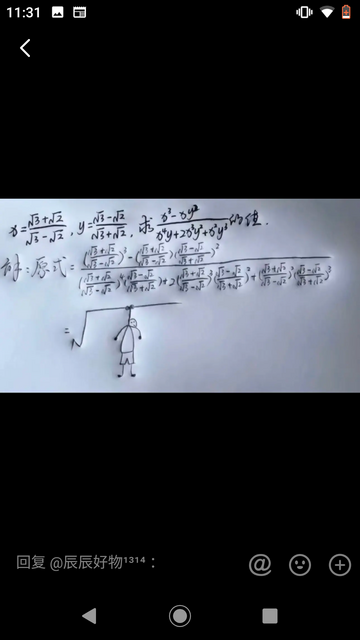 11:31
x=\frac{√3+√2}{√3-√2}, y=\frac{√3-√2}{√3+√2}, 求\frac{x³-xy²}{x⁴y+2x³y²+x²y³}的值.
解:原式=\frac{(\frac{√3+√2}{√3-√2})³-(\frac{√3+√2}{√3-√2})(\frac{√3-√2}{√3+√2})²}{(\frac{√3+√2}{√3-√2})⁴(\frac{√3-√2}{√3+√2})+2(\frac{√3+√2}{√3-√2})³(\frac{√3-√2}{√3+√2})²+(\frac{√3+√2}{√3-√2})²(\frac{√3-√2}{√3+√2})³}
=√
回复 @辰辰好物¹³¹⁴：